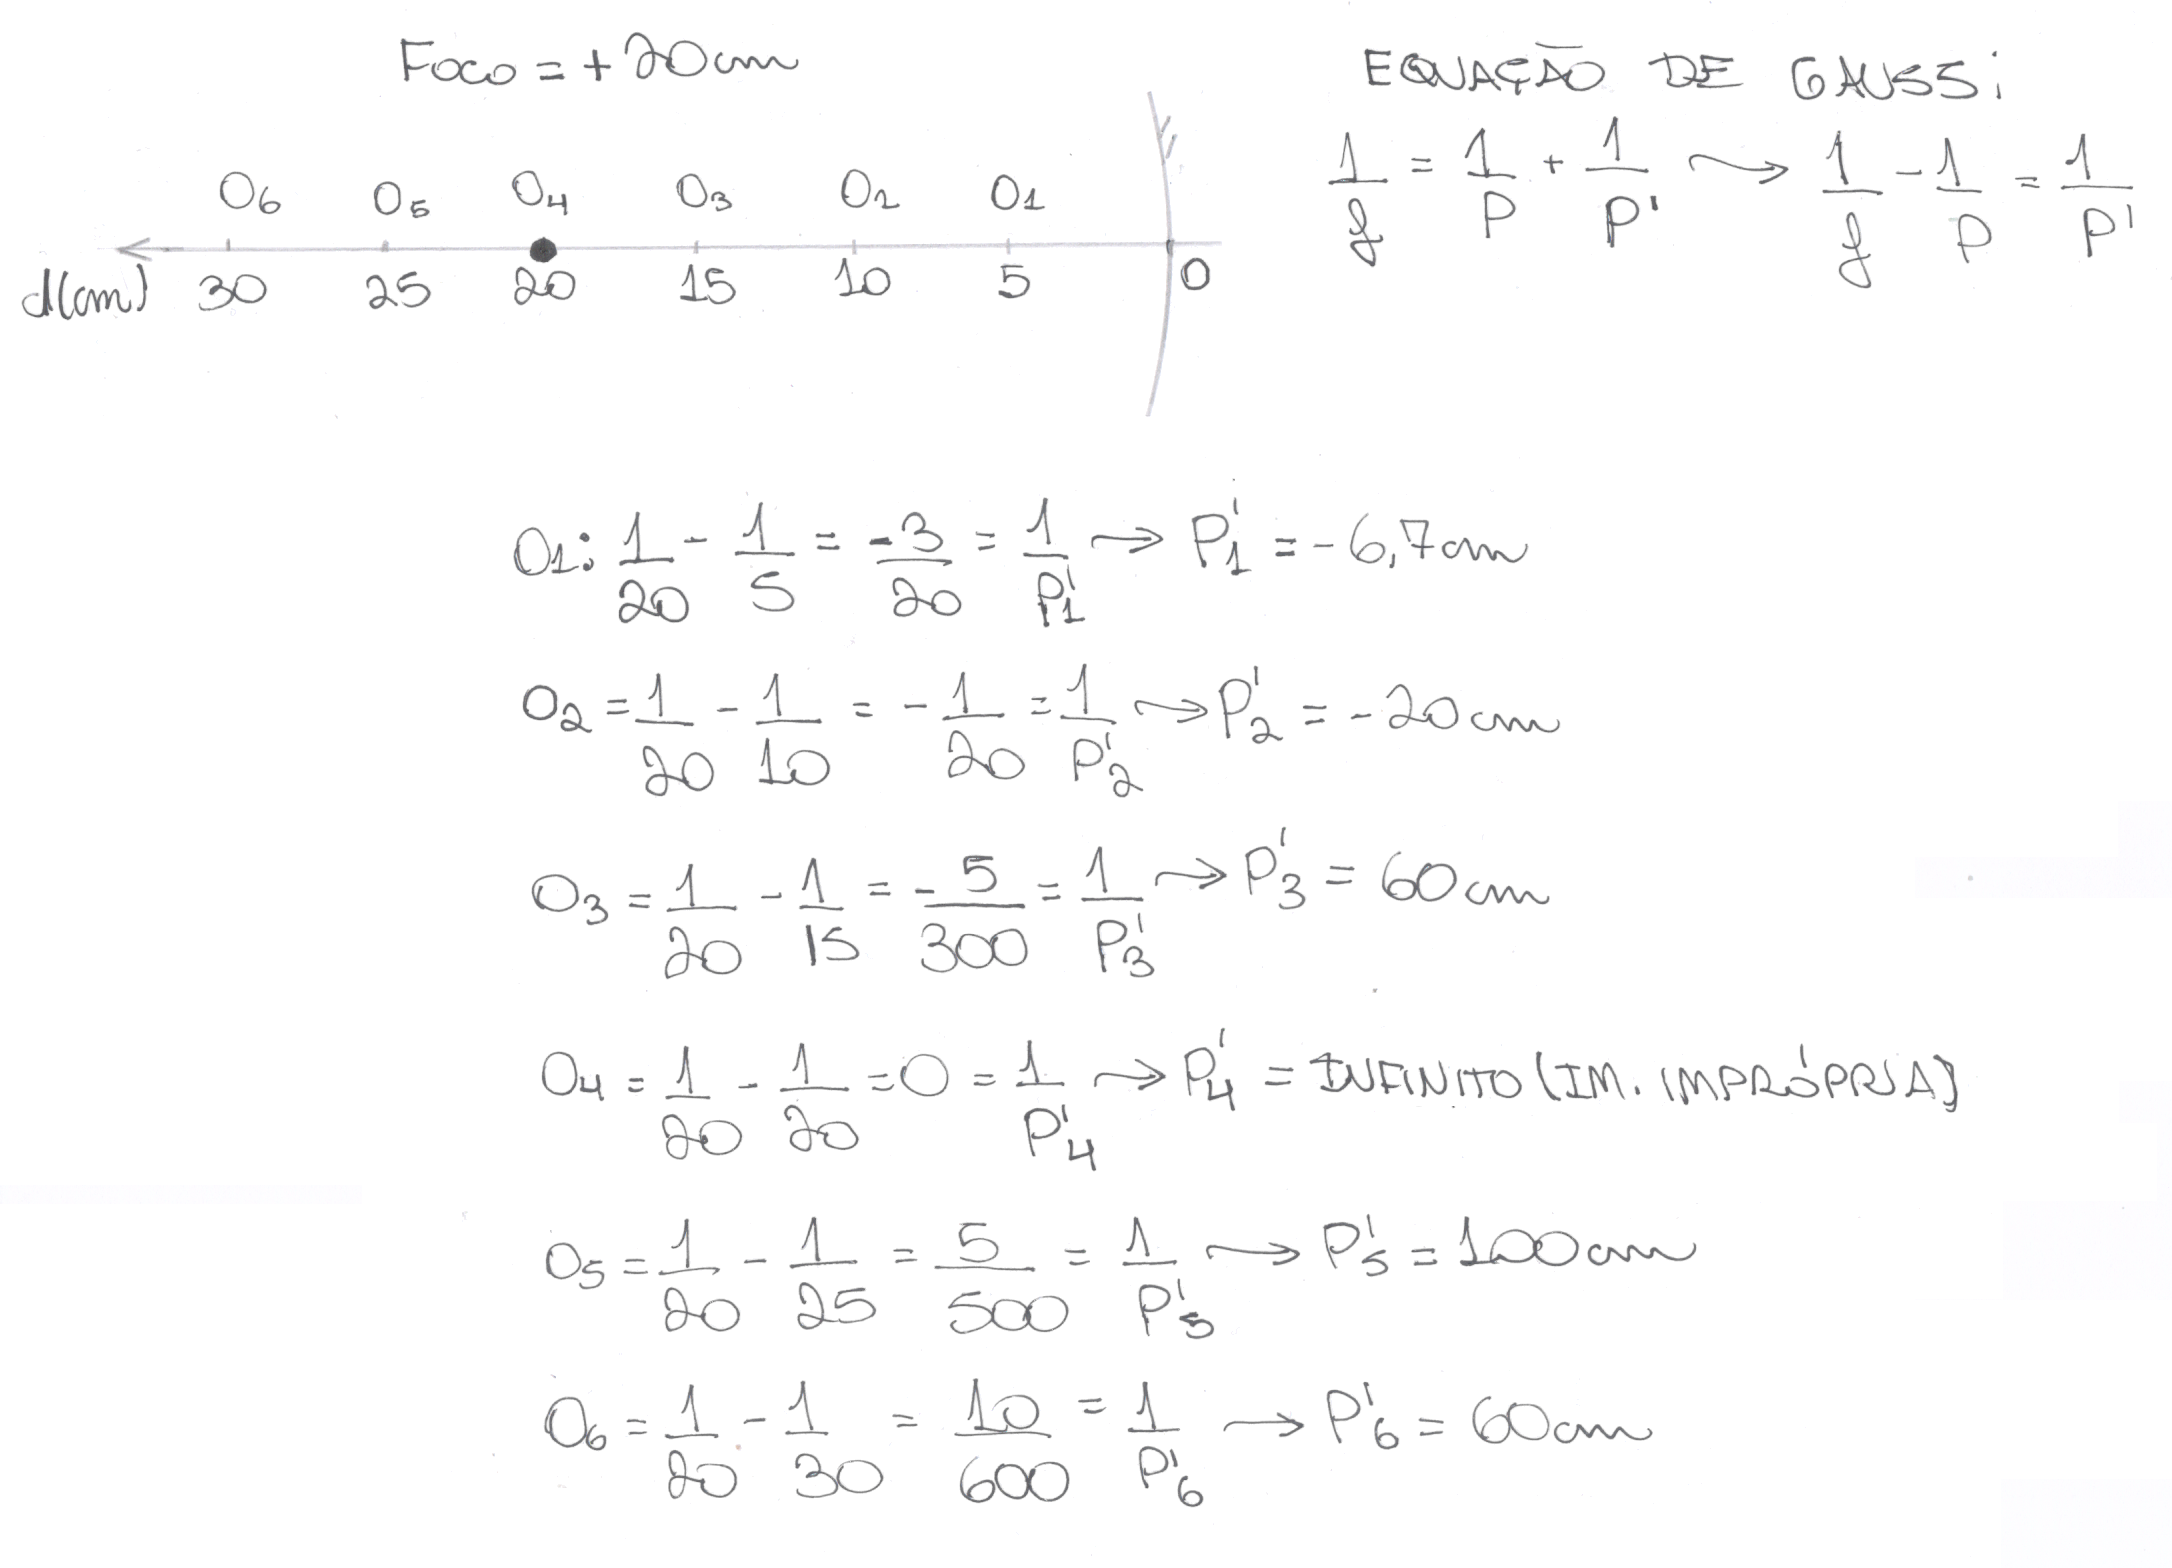 Foco = +20cm
EQUAÇÃO DE GAUSS:
1/f = 1/P + 1/P' → 1/f - 1/P = 1/P'
O6 O5 O4 O3 O2 O1
d(cm) 30 25 20 15 10 5 0
O1: 1/20 - 1/5 = -3/20 = 1/P'1 → P'1 = -6,7cm
O2 = 1/20 - 1/10 = -1/20 = 1/P'2 → P'2 = -20cm
O3 = 1/20 - 1/15 = -5/300 = 1/P'3 → P'3 = 60cm
O4 = 1/20 - 1/20 = 0 = 1/P'4 → P'4 = INFINITO (IM. IMPRÓPRIA)
O5 = 1/20 - 1/25 = 5/500 = 1/P'5 → P'5 = 100cm
O6 = 1/20 - 1/30 = 10/600 = 1/P'6 → P'6 = 60cm